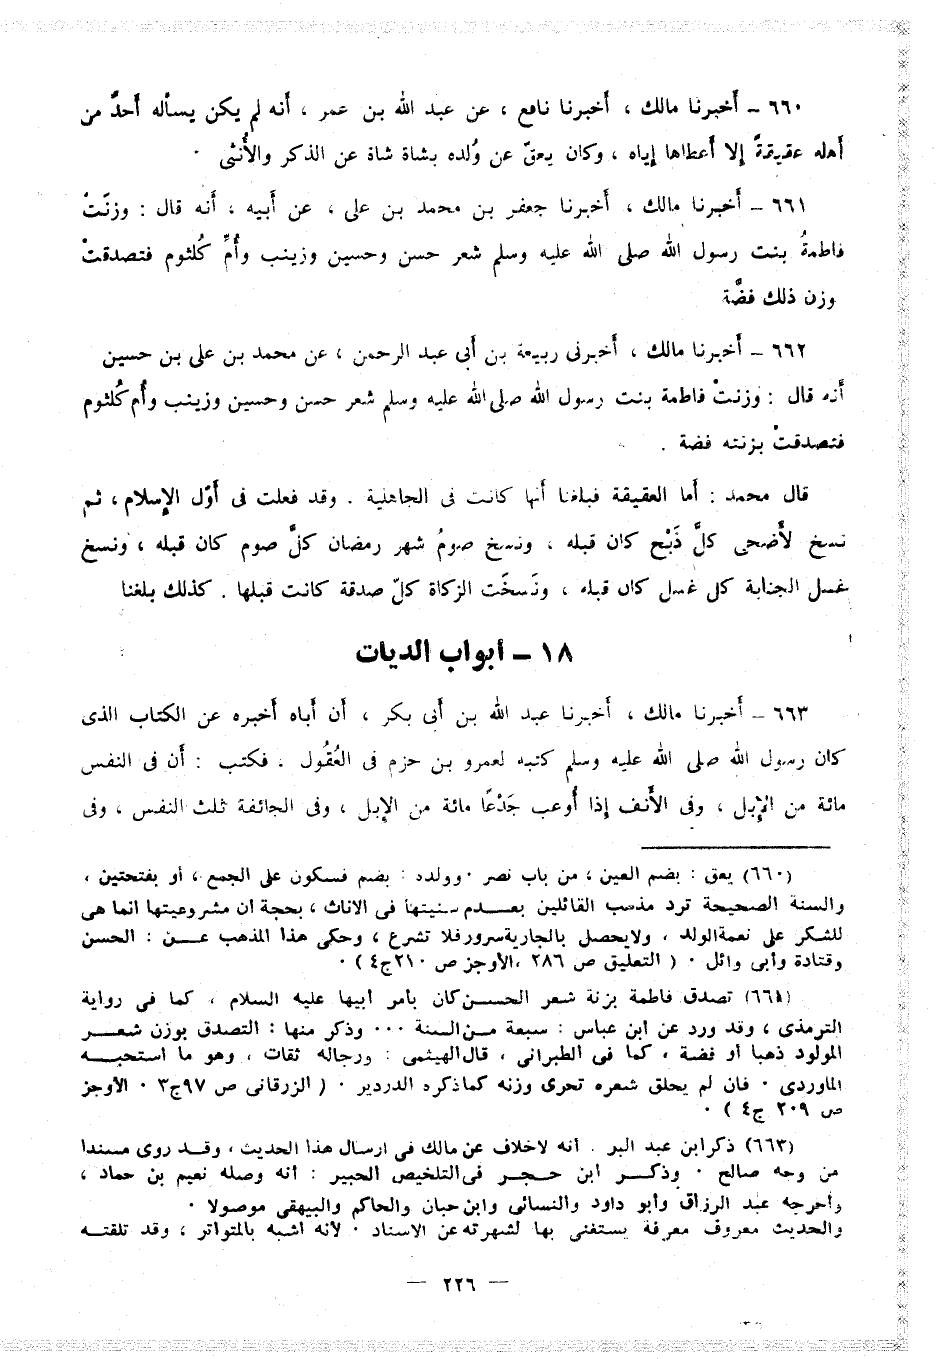 ٦٦٠ – أخبرنا مالك ، أخبرنا نافع ، عن عبد الله بن عمر ، أنه لم يكن يسأله أحدٌ من
أهله عقيقةً إلا أعطاها إياه ، وكان يعقّ عن وُلده بشاة شاة عن الذكر والأُنثى ٠
٦٦١ – أخبرنا مالك ، أخبرنا جعفر بن محمد بن على ، عن أبيه ، أنه قال : وزنَتْ
فاطمةُ بنت رسول الله صلى الله عليه وسلم شعر حسن وحسين وزينب وأُمِّ كُلثوم فتصدقتْ
وزن ذلك فضَّة
٦٦٢ – أخبرنا مالك ، أخبرنى ربيعة بن أبى عبد الرحمن ، عن محمد بن على بن حسين
أنه قال : وزنتْ فاطمة بنت رسول الله صلى الله عليه وسلم شعر حسن وحسين وزينب وأُم كُلثوم
فتصدقتْ بزنته فضة .
قال محمد : أما العقيقة فبلغنا أنها كانت فى الجاهلية . وقد فعلت فى أوّل الإسلام ، ثم
نسخ لأَضحى كلَّ ذَبْح كان قبله ، ونسخ صومُ شهر رمضان كلَّ صوم كان قبله ، ونسخ
غسل الجنابة كل غسل كان قبله ، ونَسخَت الزكاة كلّ صدقة كانت قبلها . كذلك بلغنا
١٨ – أبواب الديات
٦٦٣ – أخبرنا مالك ، أخبرنا عبد الله بن أبى بكر ، أن أباه أخبره عن الكتاب الذى
كان رسول الله صلى الله عليه وسلم كتبه لعمرو بن حزم فى العُقُول . فكتب : أن فى النفس
مائة من الإبل ، وفى الأنف إذا أُوعب جَدْعًا مائة من الإبل ، وفى الجائفة ثلث النفس ، وفى
(٦٦٠) يعق : بضم العين ، من باب نصر ٠ وولده : بضم فسكون على الجمع ، أو بفتحتين ،
والسنة الصحيحة ترد مذهب القائلين بعدم سنيتها فى الاناث ، بحجة ان مشروعيتها انما هى
للشكر على نعمة الولد ، ولا يحصل بالجارية سرور فلا تشرع ، وحكى هذا المذهب عن : الحسن
وقتادة وأبى وائل ٠ ( التعليق ص ٢٨٦ ، الأوجز ص ٢١٠ ج٤ ) ٠
(٦٦١) تصدق فاطمة بزنة شعر الحسن كان بأمر أبيها عليه السلام ، كما فى رواية
الترمذى ، وقد ورد عن ابن عباس : سبعة من السنة ٠٠٠ وذكر منها : التصدق بوزن شعر
المولود ذهبا أو فضة ، كما فى الطبرانى ، قال الهيثمى : ورجاله ثقات ، وهو ما استحبه
الماوردى ٠ فان لم يحلق شعره تحرى وزنه كما ذكره الدردير ٠ ( الزرقانى ص ٩٧ ج٣ ٠ الأوجز
ص ٢٠٩ ج٤ ) ٠
(٦٦٣) ذكر ابن عبد البر . أنه لا خلاف عن مالك فى ارسال هذا الحديث ، وقد روى مسندا
من وجه صالح ٠ وذكر ابن حجر فى التلخيص الحبير : أنه وصله نعيم بن حماد ،
وأخرجه عبد الرزاق وأبو داود والنسائى وابن حبان والحاكم والبيهقى موصولا ٠
والحديث معروف معرفة يستغنى بها لشهرته عن الاسناد ٠ لأنه أشبه بالمتواتر ، وقد تلقته
— ٢٢٦ —